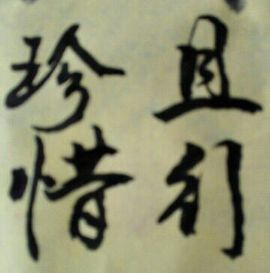 且行
珍惜